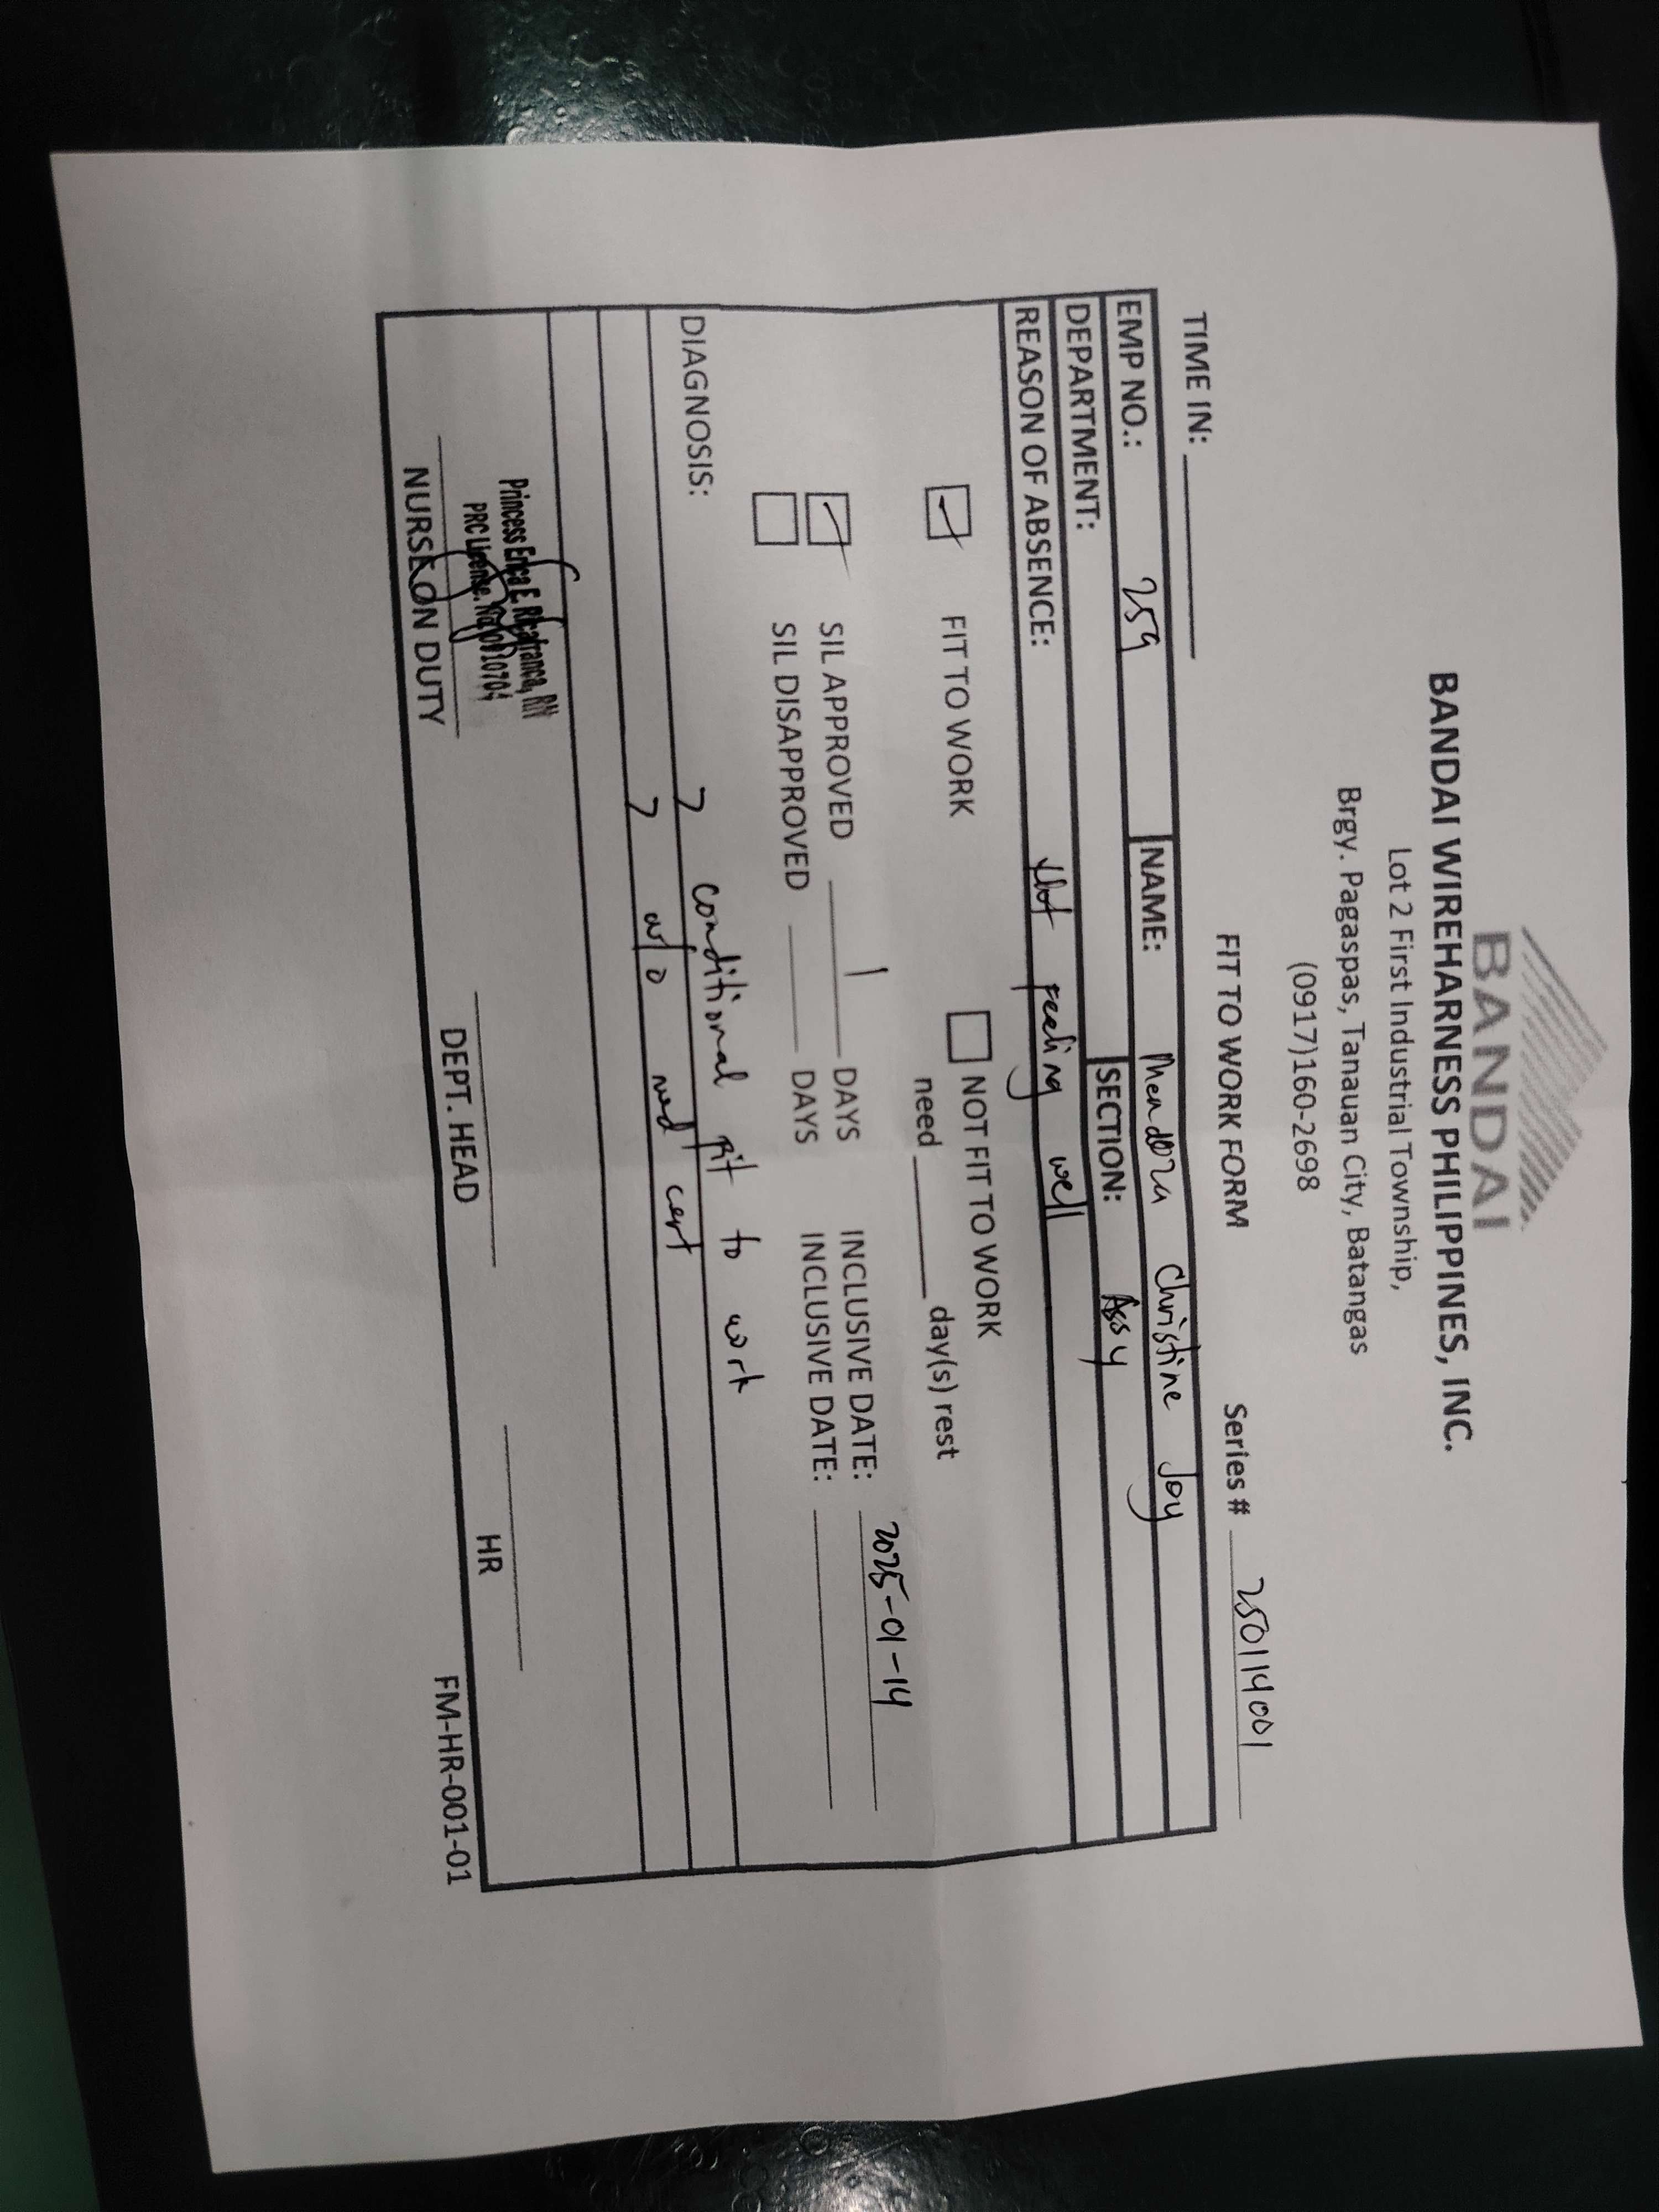 BANDAI
BANDAI WIREHARNESS PHILIPPINES, INC.
Lot 2 First Industrial Township,
Brgy. Pagaspas, Tanauan City, Batangas
(0917)160-2698
FIT TO WORK FORM Series # 250114001
TIME IN:
EMP NO.: 259 NAME: Mendoza Christine Joy
DEPARTMENT: SECTION: Assy
REASON OF ABSENCE: Not feeling well
FIT TO WORK NOT FIT TO WORK
need day(s) rest
SIL APPROVED 1 DAYS INCLUSIVE DATE: 2025-01-14
SIL DISAPPROVED DAYS INCLUSIVE DATE:
DIAGNOSIS: conditional fit to work
w/o med cert
Princess Erica E. RN
PRC License. No.
NURSE ON DUTY DEPT. HEAD HR
FM-HR-001-01